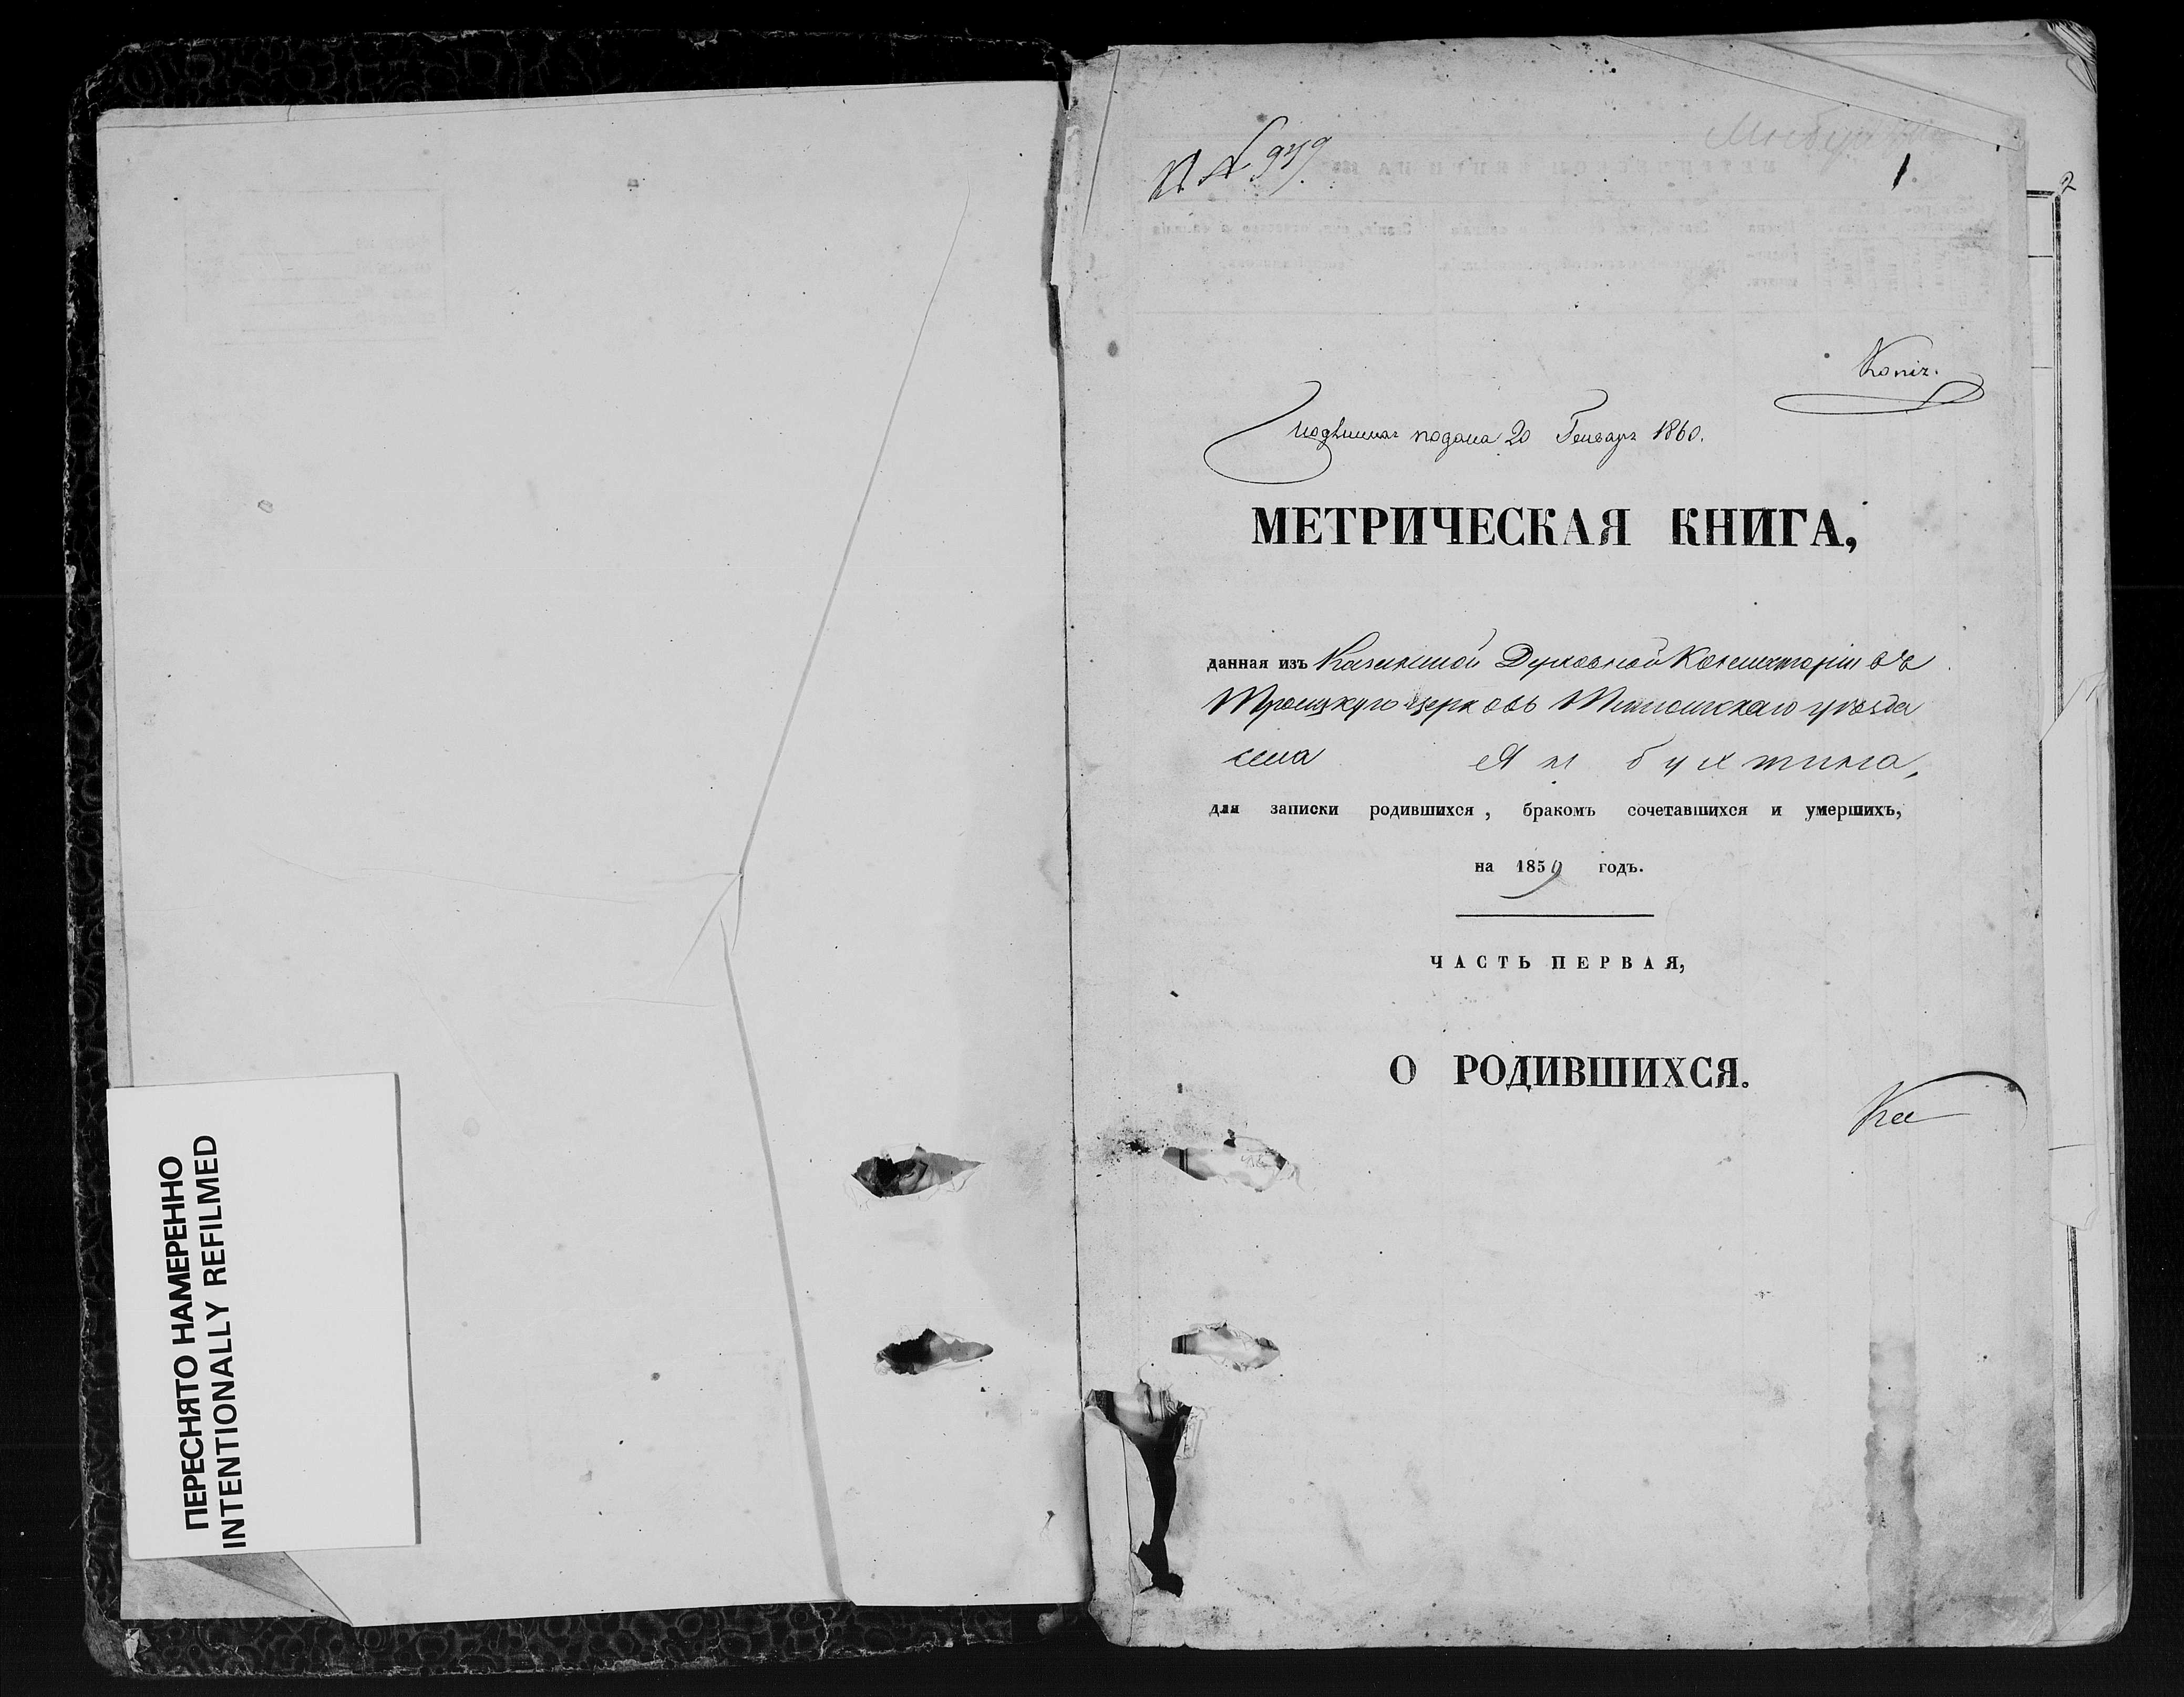 ПЕРЕСНЯТО НАМЕРЕННО
INTENTIONALLY REFILMED
№ 979
1
2
Копія.
подѣлинная подана 20 Генваря 1860.
МЕТРИЧЕСКАЯ КНИГА,
данная изъ Казанской Духовной Консисторіи въ
Троицкую церковь Тетюшскаго уѣзда
села Янбухтина,
для записки родившихся, бракомъ сочетавшихся и умершихъ,
на 1859 годъ.
ЧАСТЬ ПЕРВАЯ,
О РОДИВШИХСЯ.
Ка